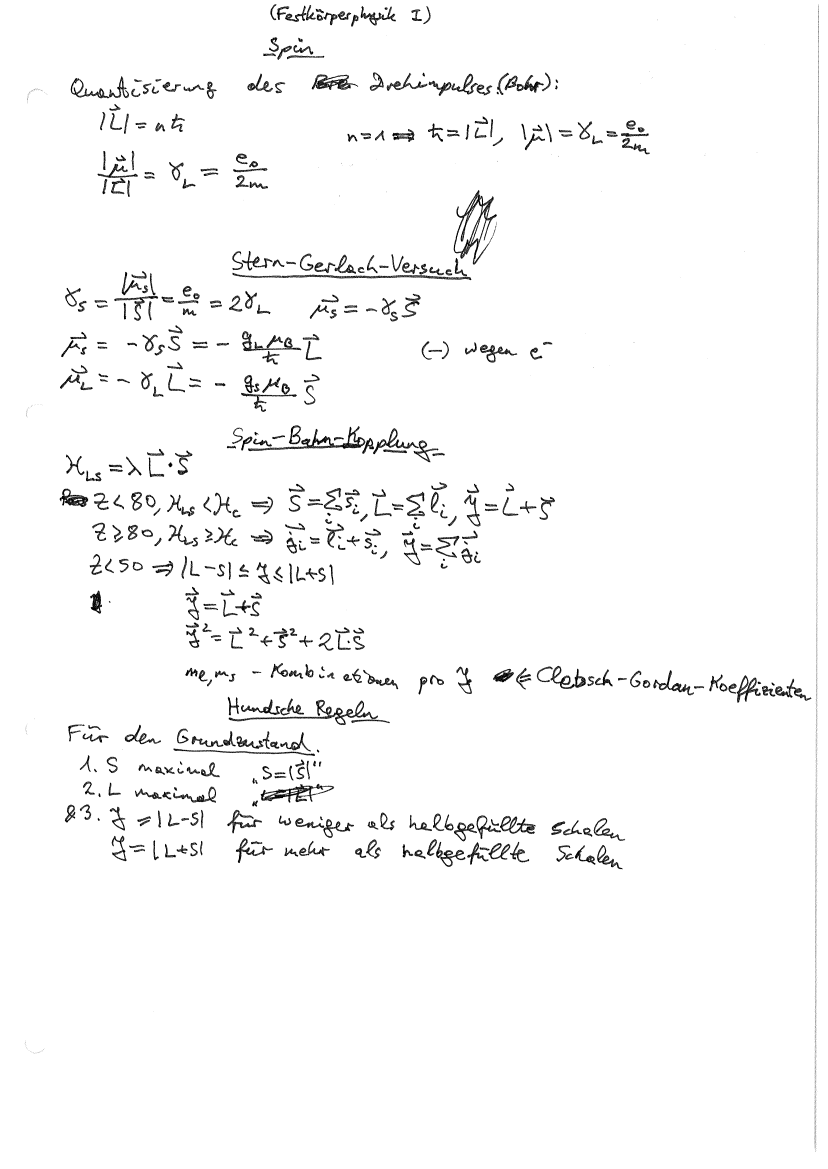 (Festkörperphysik I)
Spin
Quantisierung des Drehimpulses (Bohr):
|L⃗| = nħ
n=1 ⟹ ħ=|L⃗|, |μ⃗|=γ_L=e₀/2m
|μ⃗|/|L⃗| = γ_L = e₀/2m
Stern-Gerlach-Versuch
γ_s = |μ⃗_s|/|S⃗| = e₀/m = 2γ_L μ⃗_s = -γ_s S⃗
μ⃗_s = -γ_s S⃗ = - g_L μ_B/ħ L⃗ (-) wegen e⁻
μ⃗_L = -γ_L L⃗ = - g_s μ_B/ħ S⃗
Spin-Bahn-Kopplung
H_LS = λ L⃗·S⃗
Z<80, H_LS < H_c ⇒ S⃗=∑_i s⃗_i, L⃗=∑_i l⃗_i, J⃗=L⃗+S⃗
Z≥80, H_LS ≥ H_c ⇒ j⃗_i=l⃗_i+s⃗_i, J⃗=∑_i j⃗_i
Z<50 ⇒ |L-S| ≤ J ≤ |L+S|
J⃗=L⃗+S⃗
J⃗²=L⃗²+S⃗²+2L⃗S⃗
me, ms - Kombinationen pro J ⇐ Clebsch-Gordan-Koeffizienten
Hundsche Regeln
Für den Grundzustand.
1. S maximal „S=|S⃗|"
2. L maximal
3. J = |L-S| für weniger als halbgefüllte Schalen
J = |L+S| für mehr als halbgefüllte Schalen